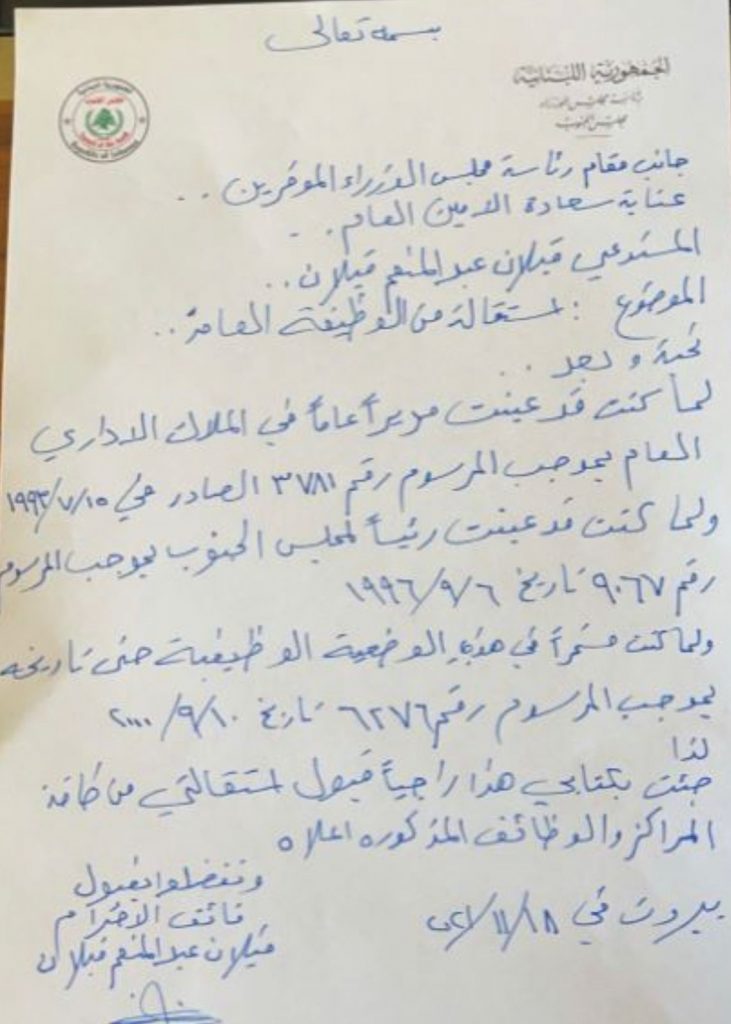 بسمه تعالى
الجمهورية اللبنانية
رئاسة مجلس الوزراء
مجلس الجنوب
الجمهورية اللبنانية
مجلس الجنوب
Council of the South
Republic of Lebanon
جانب مقام رئاسة مجلس الوزراء الموقرين ..
عناية سعادة الامين العام ..
المستدعي قبلان عبد المنعم قبلان ..
الموضوع : استقالة من الوظيفة العامة ..
تحية وبعد ..
لما كنت قد عينت مديراً عاماً في الملاك الاداري
العام بموجب المرسوم رقم ٣٧٨١ الصادر في ١٩٩٣/٧/١٥
ولما كنت قد عينت رئيساً لمجلس الجنوب بموجب المرسوم
رقم ٩٠٦٧ تاريخ ١٩٩٦/٩/٦
ولما كنت مستمراً في هذه الوضعية الوظيفية حتى تاريخه
بموجب المرسوم رقم ٦٢٧٦ تاريخ ٢٠٠٠/٩/١٠
لذا
جئت بكتابي هذا راجياً قبول استقالتي من كافة
المراكز والوظائف المذكوره اعلاه
وتفضلوا بقبول
فائق الاحترام
قبلان عبد المنعم قبلان
بيروت في ٢٠٢١/١١/١٨